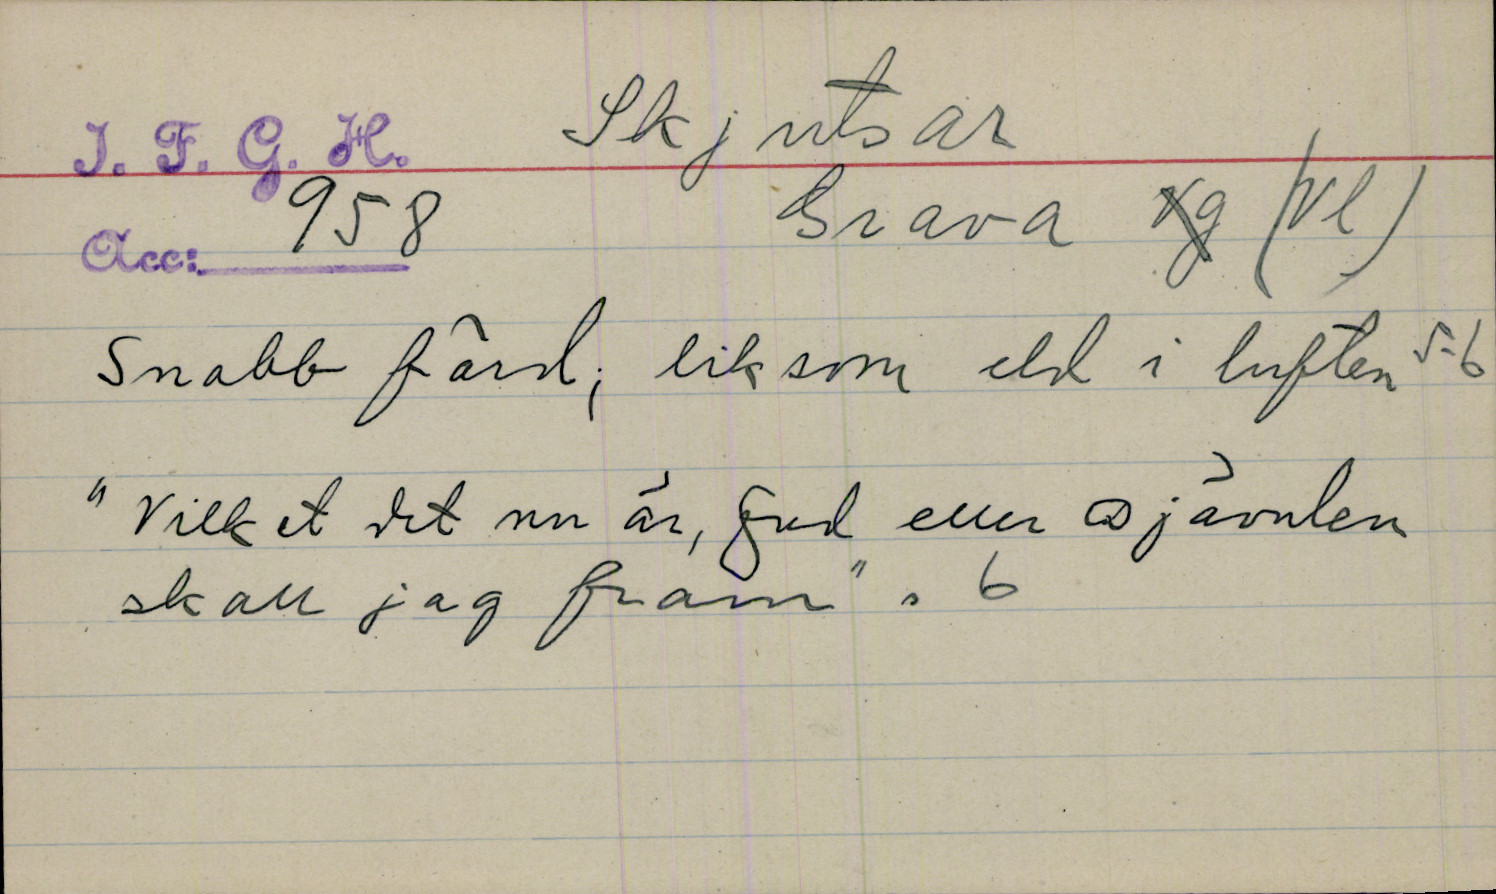 I. F. G. H. Skjutsar
Acc: 958 Grava Vg (Vl)
Snabb färd; liksom eld i luften 5-6
"Vilket det nu är, Gud eller Djävulen
skall jag fram". 6